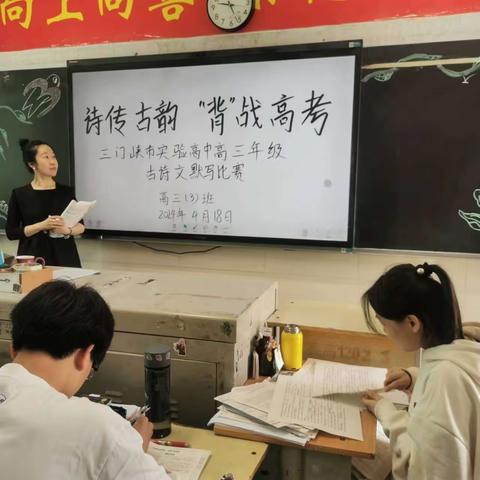 高上问善
诗传古韵 "背"战高考
三门峡市实验高中高三年级
古诗文默写比赛
高三(3)班
2024年4月18日
1202